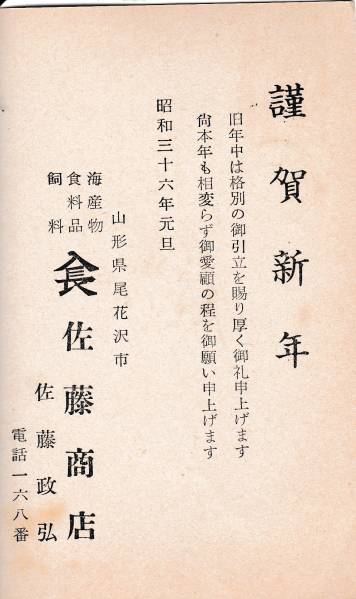 謹賀新年
旧年中は格別の御引立を賜り厚く御礼申上げます
尚本年も相変らず御愛顧の程を御願い申上げます
昭和三十六年元旦
山形県尾花沢市
海産物
食料品
飼料
長 佐藤商店
佐藤政弘
電話一六八番